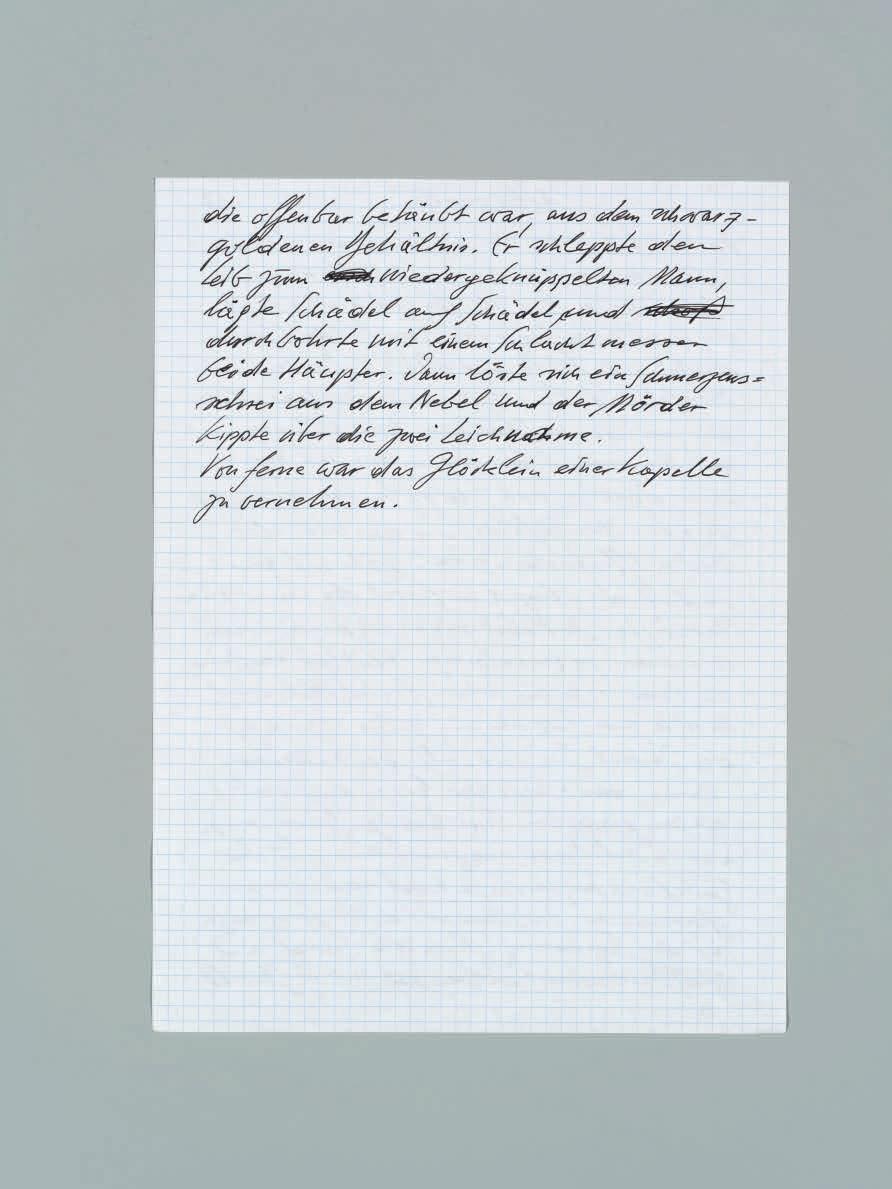 die offenbar betäubt war, aus dem schwarz-
goldenen Gehältnis. Er schleppte den
Leib zum niedergeknüppelten Mann,
legte Schädel auf Schädel und
durchbohrte mit einem Schlachtmesser
beide Häupter. Dann löste sich ein Schmerzens=
schrei aus dem Nebel und der Mörder
kippte über die zwei Leichname.
Von ferne war das Glöcklein einer Kapelle
zu vernehmen.